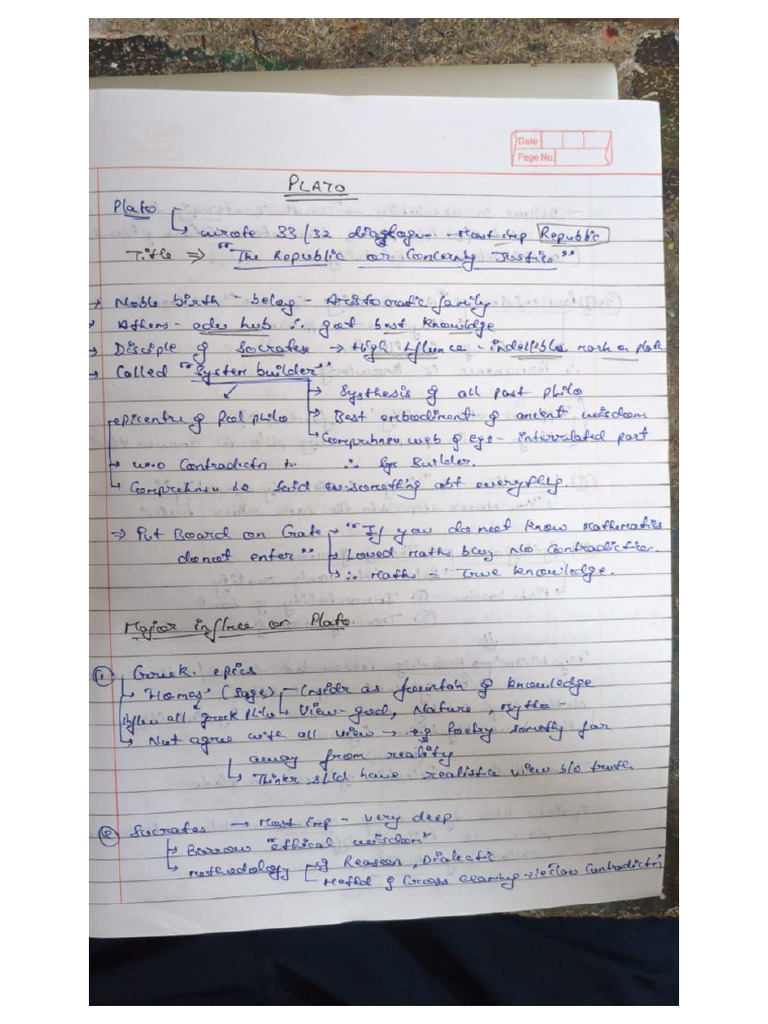 Date
Page No.
PLATO
Plato
↳ wrote 33/32 - Most imp Republic
Title ⇒ "The Republic or Concerning Justice"
→ Noble birth - belong - Aristocratic family
→ Athens - edu hub ∴ got best knowledge
→ Disciple of Socrates → High Influence - indellible mark on plato
→ Called "System builder"
→ Systhesis of all past philo
epicentre of Pol philo → Best embodiment of ancient wisdom
↳ web of - interrelated part
→ w/o ∴ Sys Builder.
↳ said something abt
⇒ Put Board on Gate - "If you do not know Mathematics
do not enter" → Loved Maths No Contradiction.
↳ ∴ Maths = True knowledge.
Major on Plato
① Greek epics
↳ Homer (Sage) - as fountain of knowledge
all greek philo ↳ View - god, Nature,
↳ Not agree with all view → e.g Poetry far
away from reality
↳ have realistic view
② Socrates → Most imp - very deep
→ Borrow "ethical wisdom"
↳ methodology of Reason, Dialectic
↳ Method of Cross